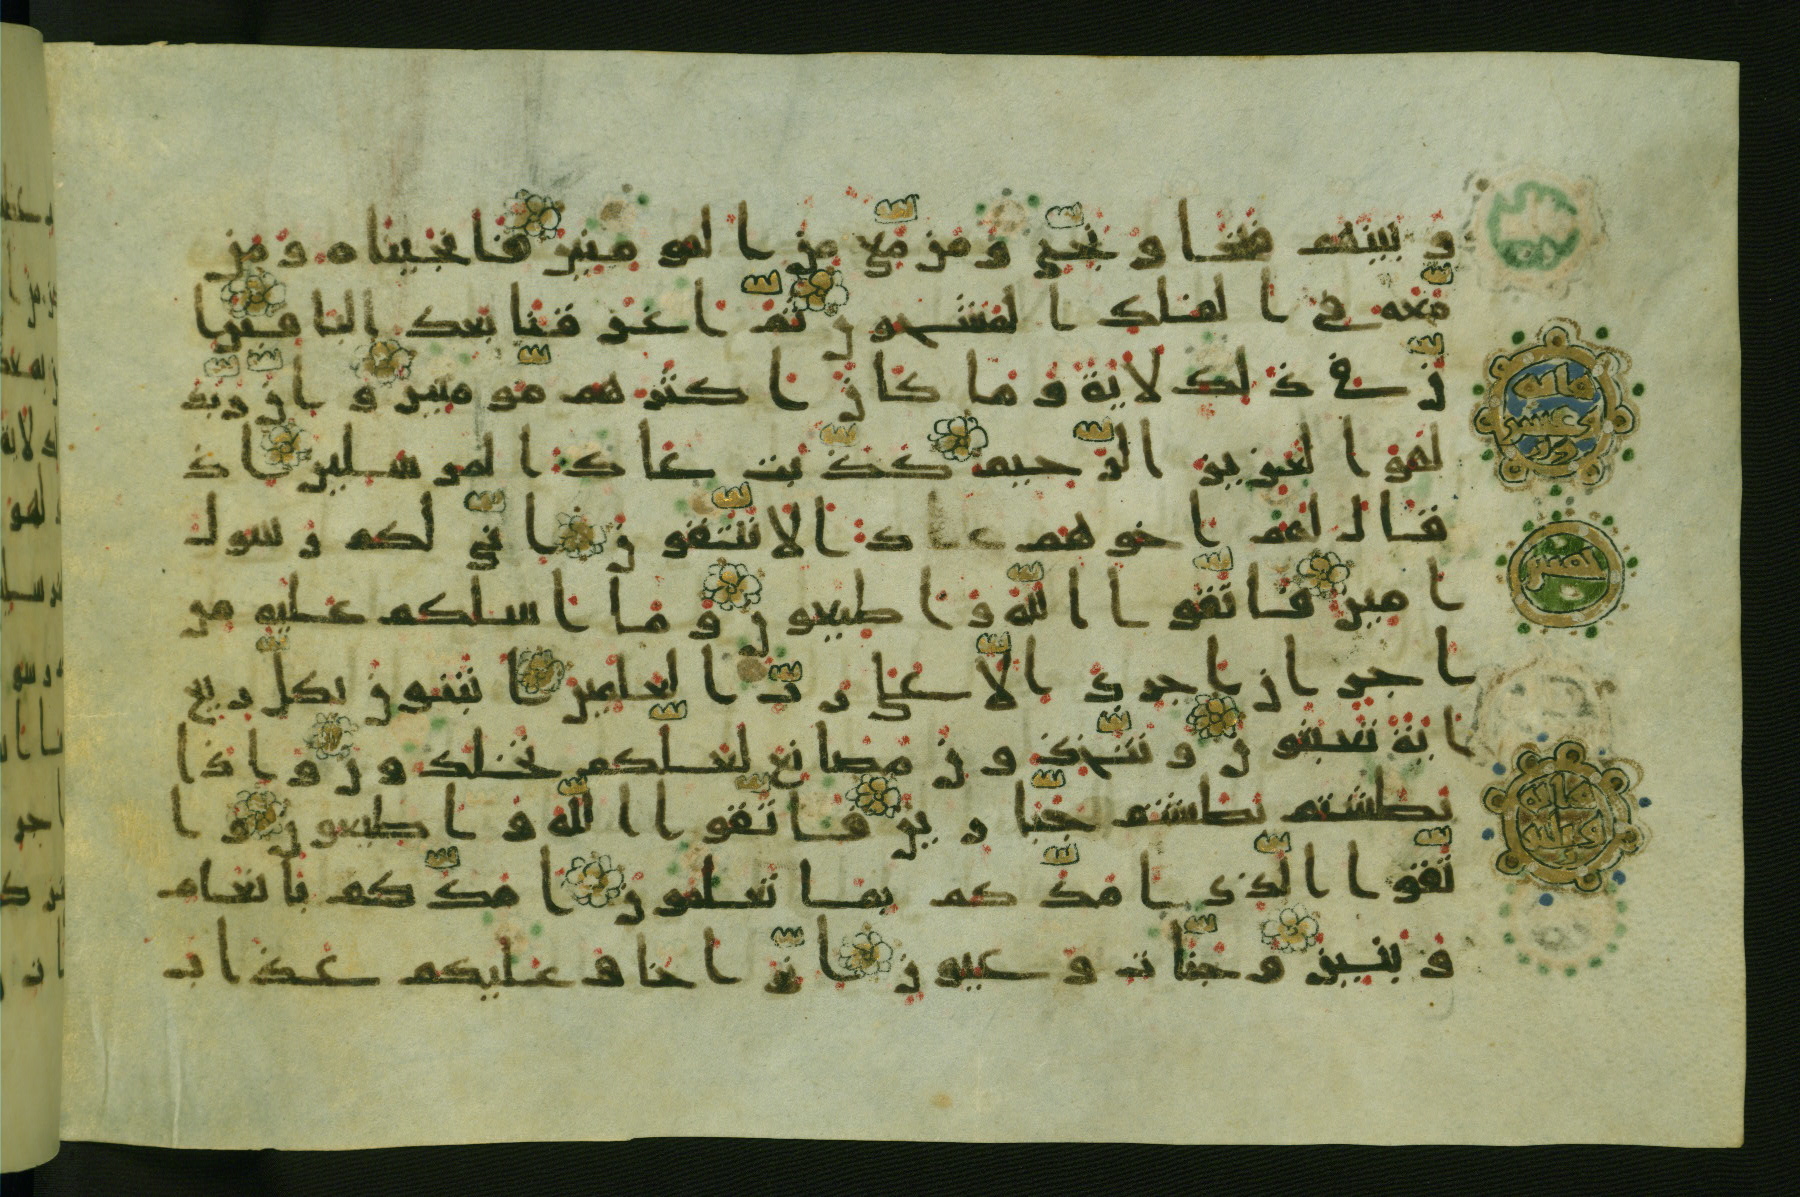 و بينهم فتحا و نجني و من معي من المومنين فانجيناه و من
معه في الفلك المشحون ثم اغرقنا بعد الباقين ا
ن في ذلك لاية و ما كان اكثرهم مومنين و ان ربك
مائة
وعشر
ون
لهو العزيز الرحيم كذبت عاد المرسلين اذ
قال لهم اخوهم الا تتقون اني لكم رسول
خمس
امين فاتقوا الله و اطيعون و ما اسلكم عليه من
اجر ان اجري الا على رب العلمين اتبنون بكل ريع
اية تعبثون و تتخذون مصانع لعلكم تخلدون و اذا
بطشتم بطشتم جبارين فاتقوا الله و اطيعون و ا
مائة
تقوا الذي امدكم بما تعلمون امدكم بانعام
و بنين و جنات و عيون اني اخاف عليكم عذاب